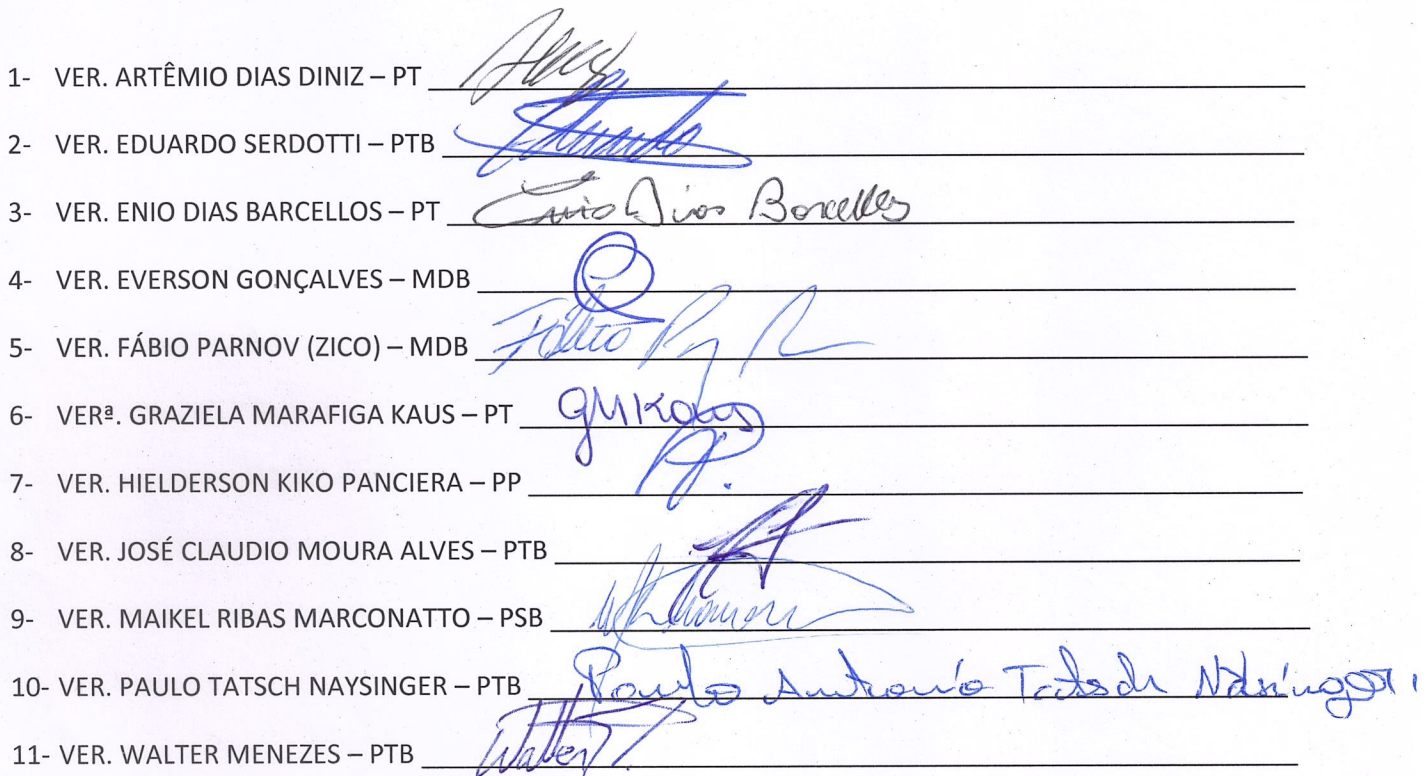 1- VER. ARTÊMIO DIAS DINIZ – PT
2- VER. EDUARDO SERDOTTI – PTB Eduardo
3- VER. ENIO DIAS BARCELLOS – PT Enio Dias Barcellos
4- VER. EVERSON GONÇALVES – MDB
5- VER. FÁBIO PARNOV (ZICO) – MDB Fábio
6- VERª. GRAZIELA MARAFIGA KAUS – PT GMKaus
7- VER. HIELDERSON KIKO PANCIERA – PP
8- VER. JOSÉ CLAUDIO MOURA ALVES – PTB
9- VER. MAIKEL RIBAS MARCONATTO – PSB
10- VER. PAULO TATSCH NAYSINGER – PTB Paulo Antonio Tatsch
11- VER. WALTER MENEZES – PTB Walter